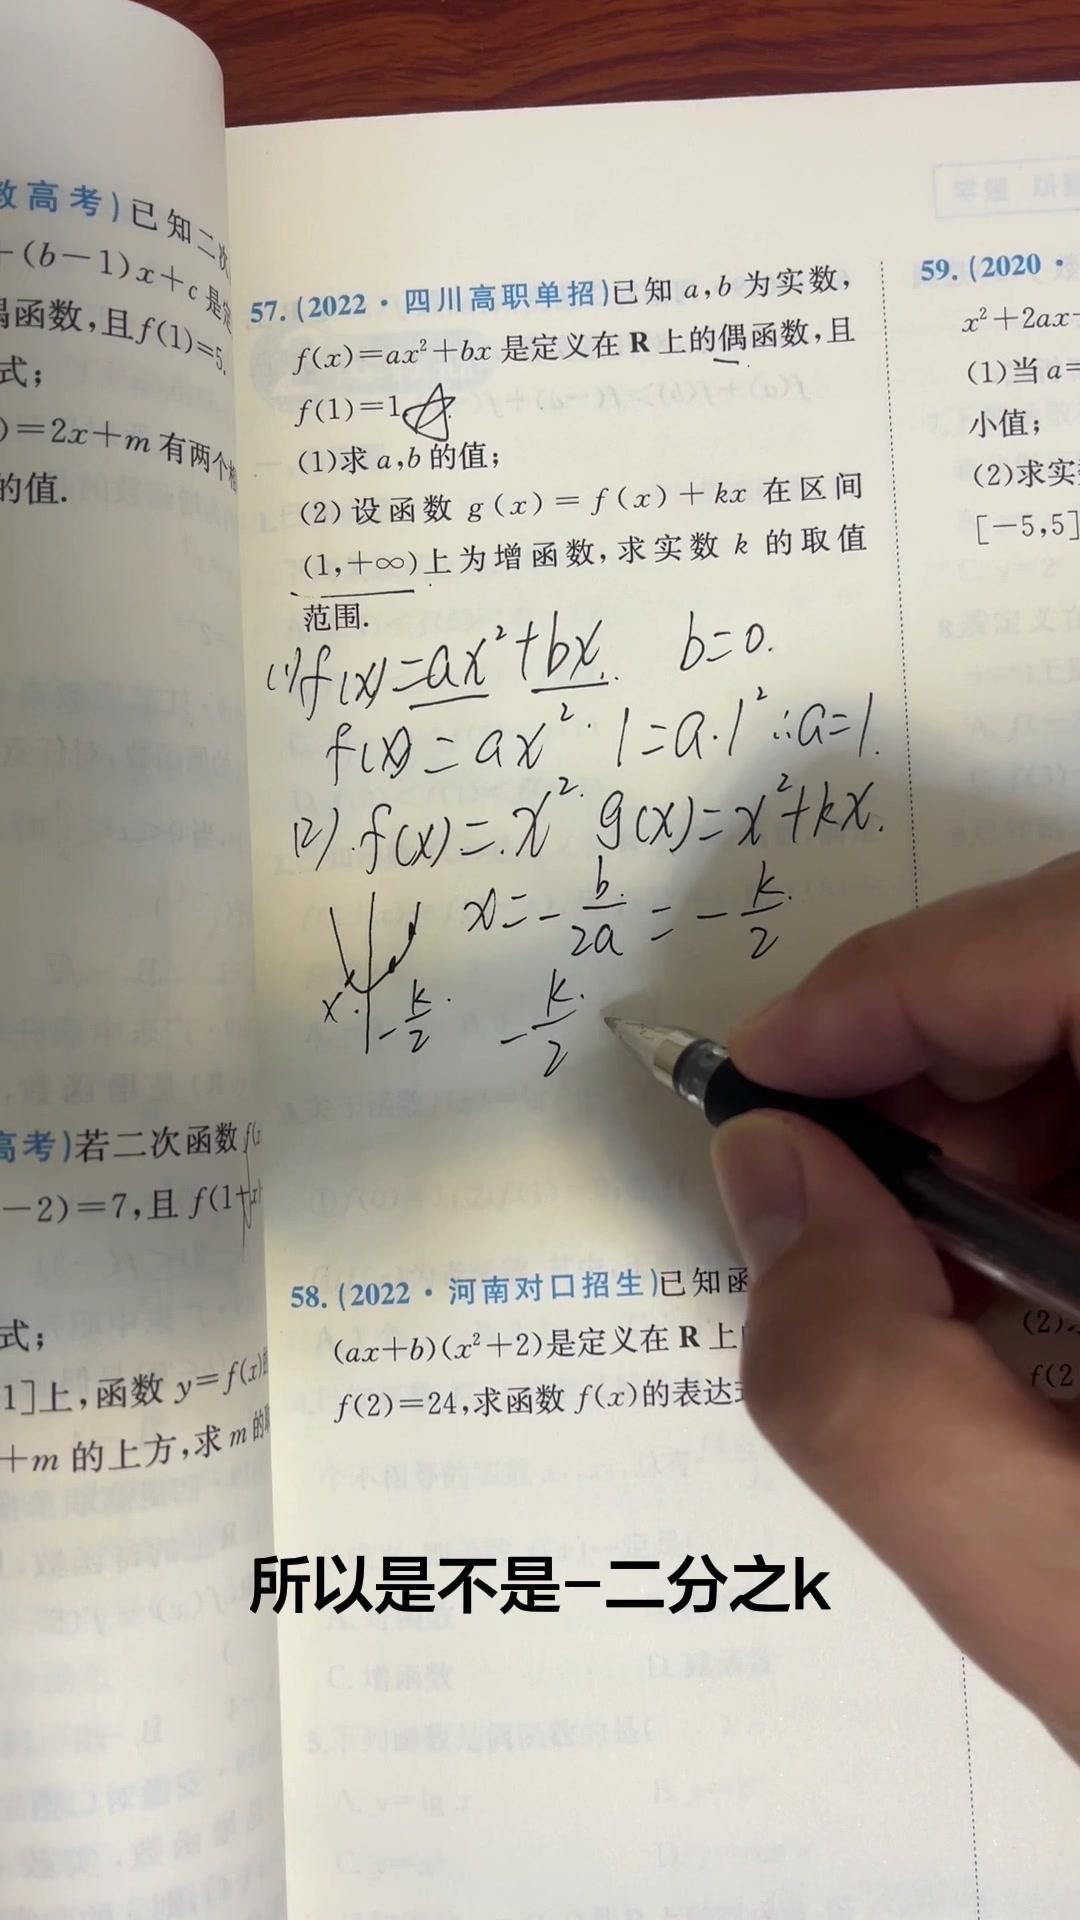 数高考)已知二次
+(b-1)x+c是定
偶函数,且f(1)=5.
式;
)=2x+m有两个相
的值.
高考)若二次函数f(x
-2)=7,且f(1+x)
式;
1]上,函数y=f(x)的
+m的上方,求m的取
57.(2022·四川高职单招)已知a,b为实数,
f(x)=ax²+bx是定义在R上的偶函数,且
f(1)=1
(1)求a,b的值;
(2)设函数g(x)=f(x)+kx在区间
(1,+∞)上为增函数,求实数k的取值
范围.
(1)f(x)=ax²+bx. b=0.
f(x)=ax². 1=a·1² ∴a=1.
(2).f(x)=x². g(x)=x²+kx.
x=-b/2a=-k/2
x. -k/2. -k/2
58.(2022·河南对口招生)已知函
(ax+b)(x²+2)是定义在R上
f(2)=24,求函数f(x)的表达式
59.(2020·
x²+2ax+
(1)当a=
小值;
(2)求实
[-5,5]
(2)
f(2
所以是不是-二分之k